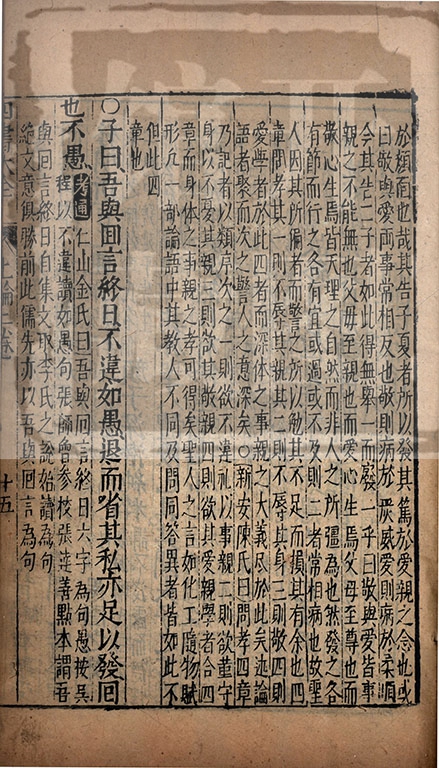 於顏面也哉其告子夏者所以發其篤於愛親之念也或
曰敬與愛兩事常相反也敬則病於嚴威愛則病於柔順
今其告二子者如此得無舉一而廢一乎曰敬與愛皆事
親之不能無也父母至親也而愛心生焉父母至尊也而
敬心生焉皆天理之自然而非人之所彊為也然發之各
有節而行之各有宜或過或不及則二者常相病也故聖
人因其所偏者而警之所以勉其不足而損其有余也四
章問孝其一則不辱其親其二則不辱其身三則敬四則
愛學者於此四者而深体之事親之大義尽於此矣迹論
語者聚而次之警人之意深矣○新安陳氏曰問孝四章
乃記者以類序次之一則欲不違礼以事親二則欲謹守
身以不憂其親三則欲其敬親四則欲其愛親學者合四
章而身体之事親之孝可得矣聖人之言如化工隨物賦
形匹一部論語中其教人不同及問同答異者皆如此不
但此四
章也
○子曰吾與回言終日不違如愚退而省其私亦足以發回
也不愚考通仁山金氏曰吾與回言終日六字為句愚按吳
程以不違讀如愚句張師曾參校張達善點本謂吾
與回言終日自集文取李氏之說始讀為句
絶文意俱勝前此儒先亦以吾與回言為句
四書大全 上論二卷 十五